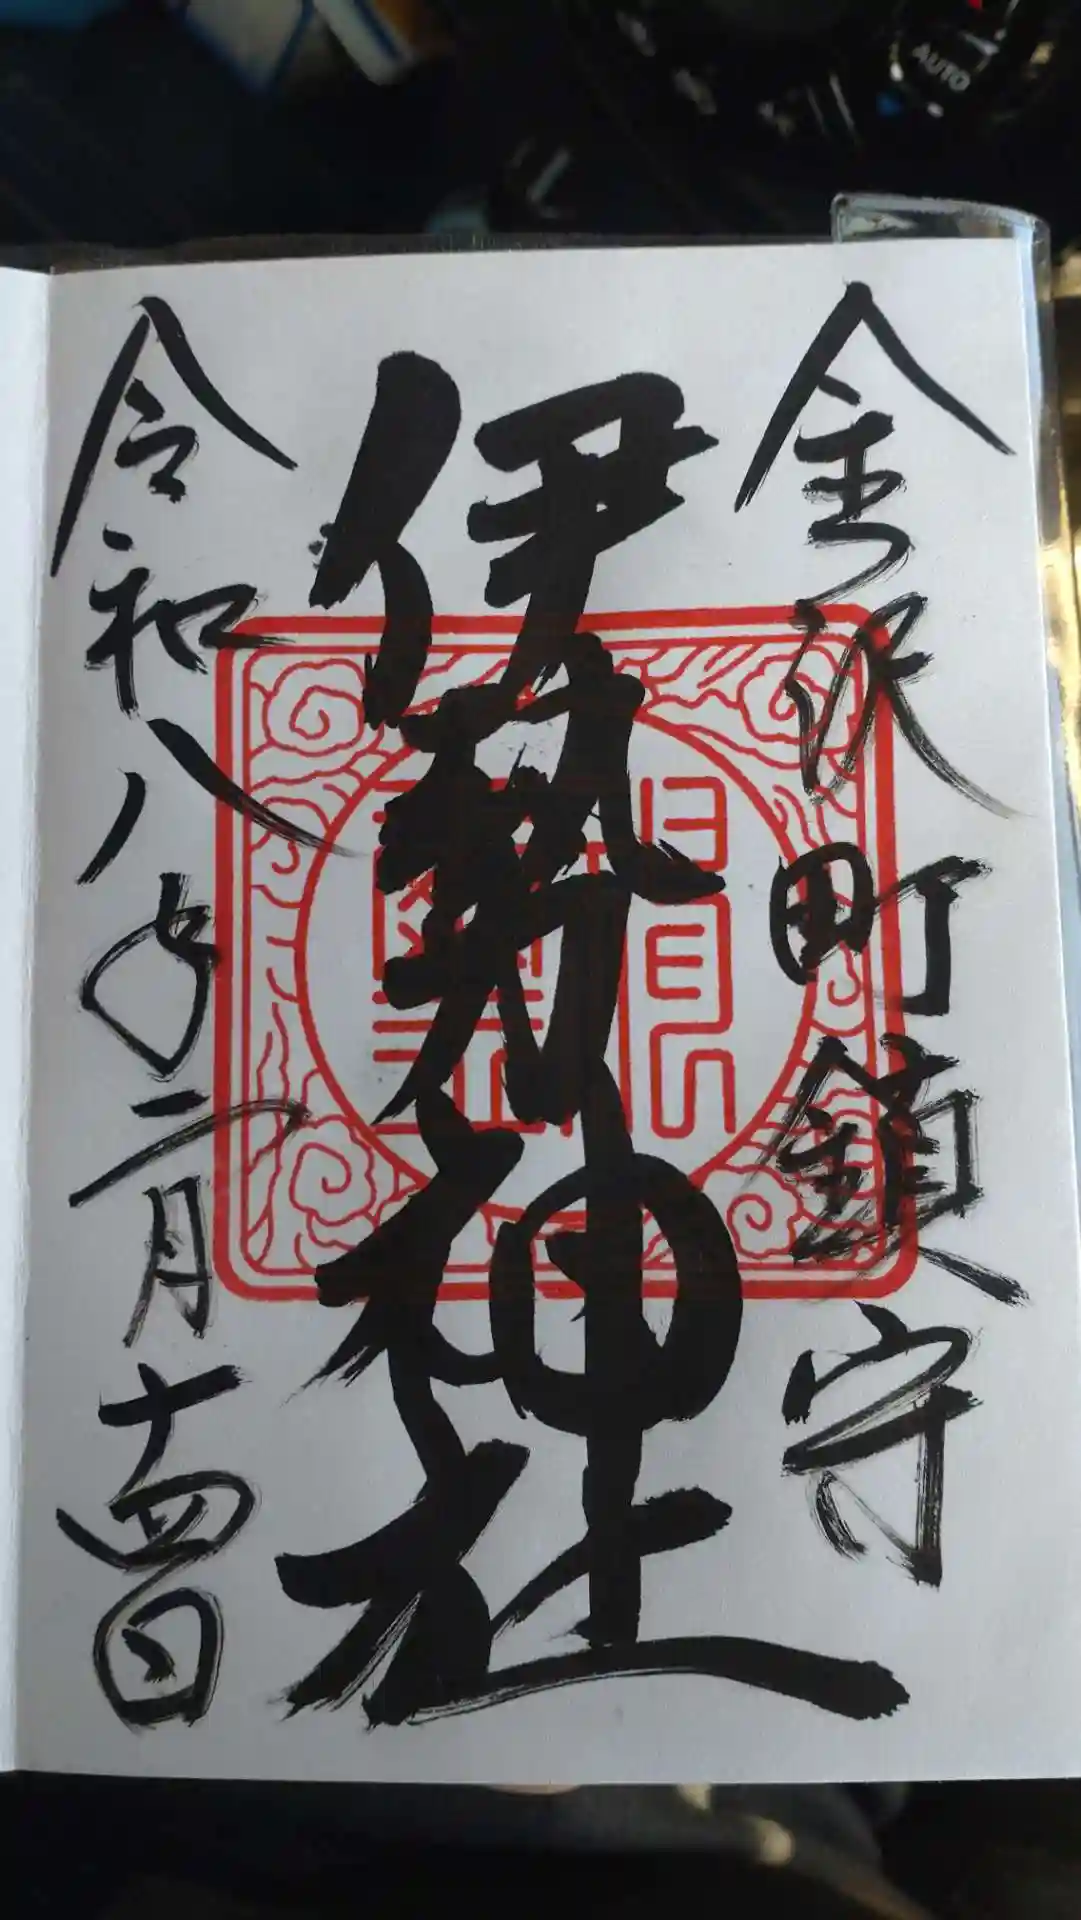 金沢町鎮守
伊勢神社
令和八年二月十四日
AUTO